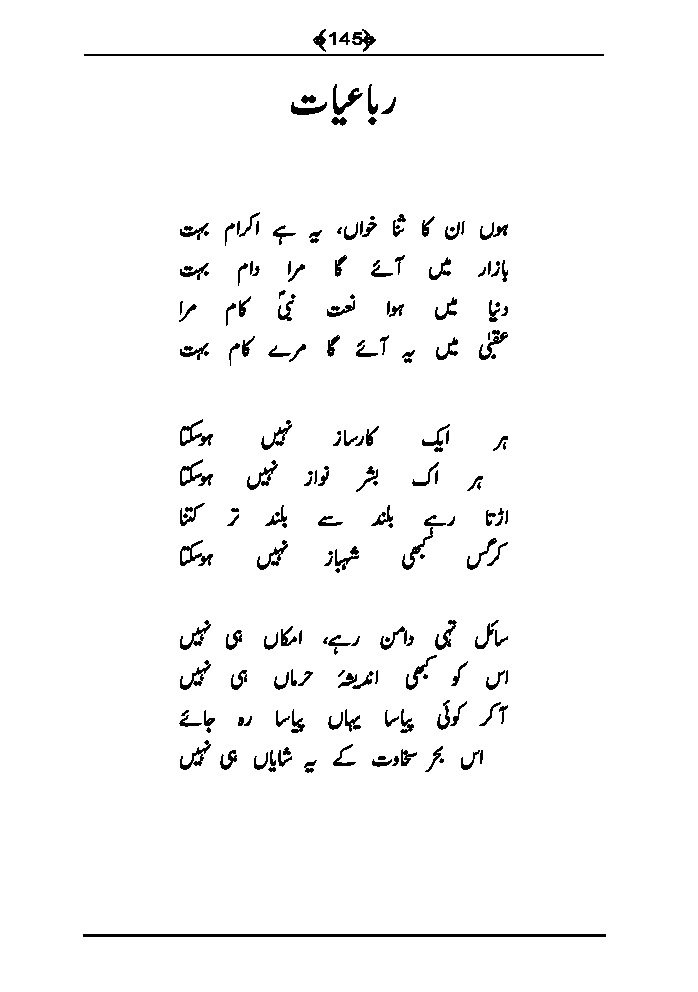 145
رباعیات
ہوں ان کا ثنا خواں، یہ ہے اکرام بہت
بازار میں آئے گا مرا دام بہت
دنیا میں ہوا نعت نبیؐ کام مرا
عقبیٰ میں یہ آئے گا مرے کام بہت
ہر ایک کارساز نہیں ہوسکتا
ہر اک بشر نواز نہیں ہوسکتا
اڑتا رہے بلند سے بلند تر کتنا
کرگس کبھی شہباز نہیں ہوسکتا
سائل تہی دامن رہے، امکاں ہی نہیں
اس کو کبھی اندیشۂ حرماں ہی نہیں
آکر کوئی پیاسا یہاں پیاسا رہ جائے
اس بحر سخاوت کے یہ شایاں ہی نہیں